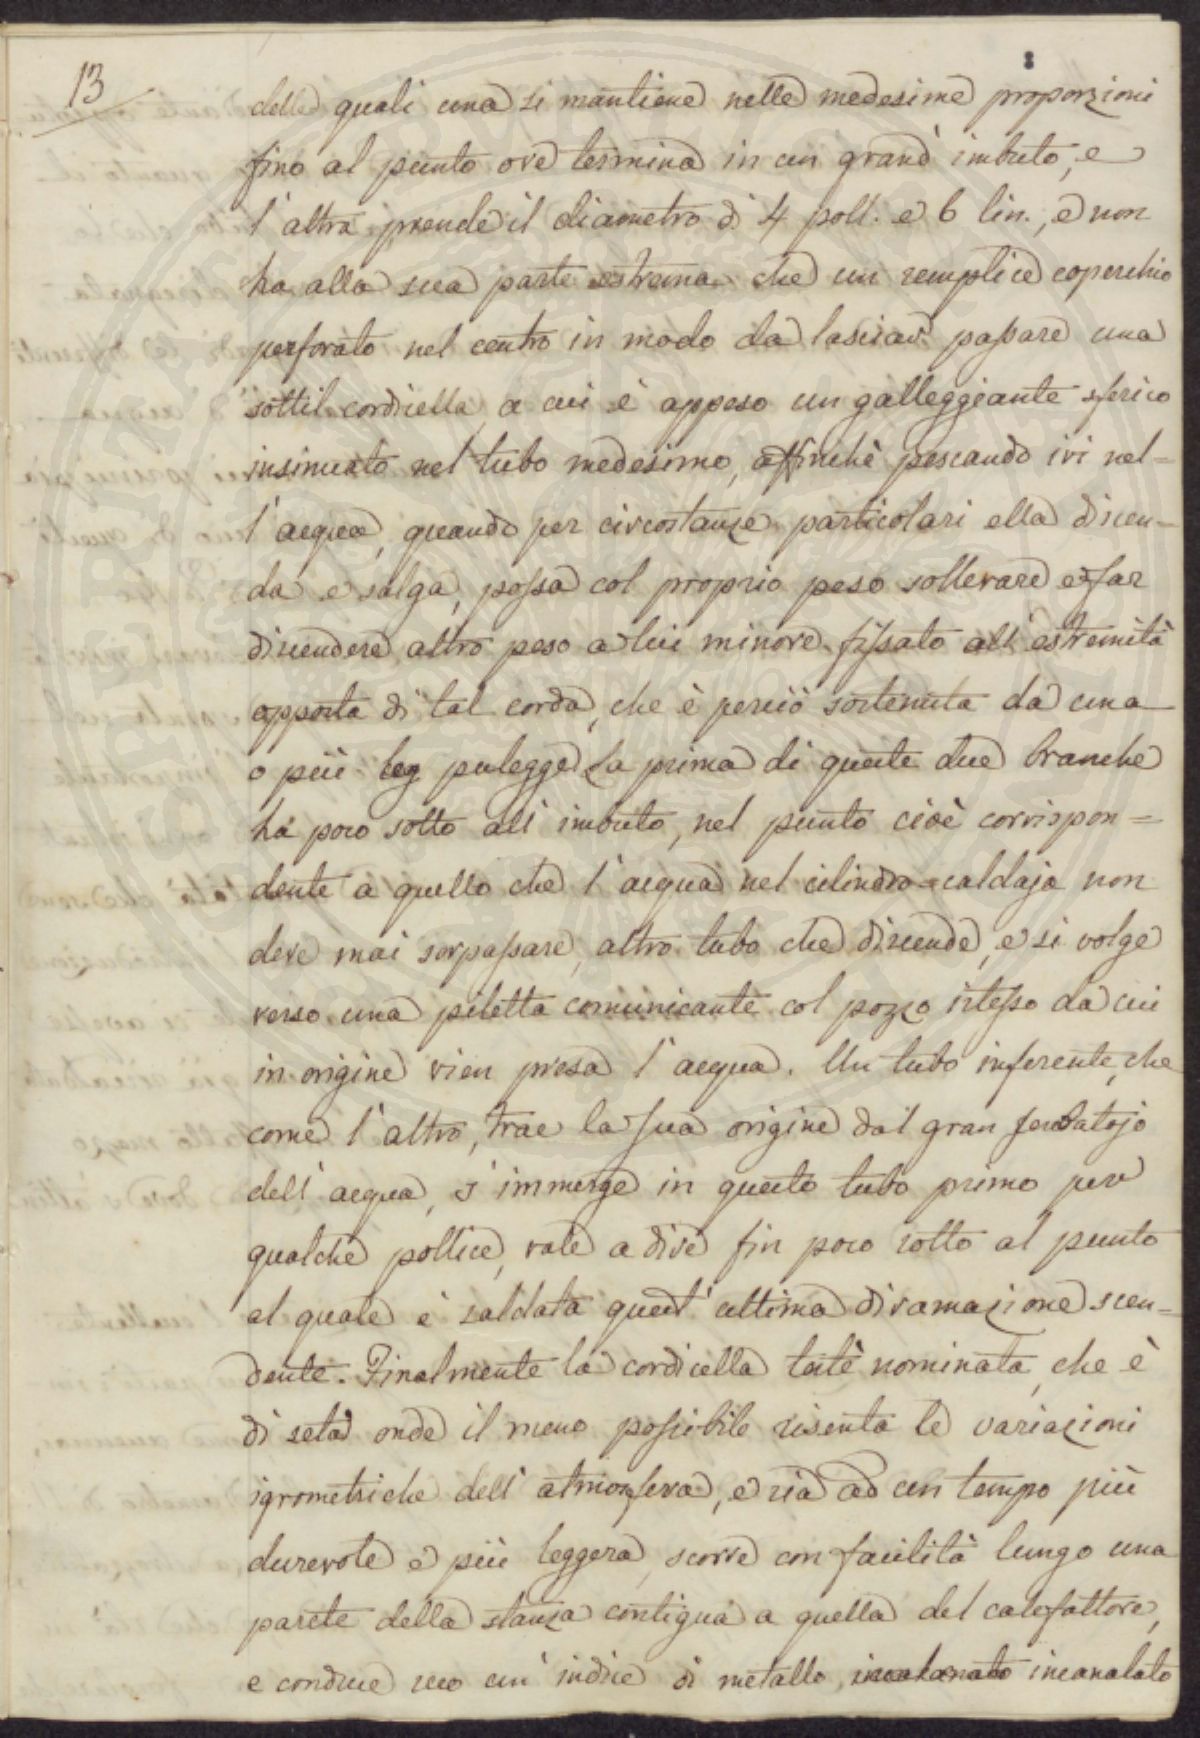 13
delle quali una si mantiene nelle medesime proporzioni
fino al punto ove termina in un grand' imbuto, e
l'altra prende il diametro di 4 poll. e 6 lin., e non
ha alla sua parte estrema che un semplice coperchio
perforato nel centro in modo da lasciar passare una
sottil cordicella a cui è appeso un galleggiante sferico
insinuato nel tubo medesimo, affinchè pescando ivi nel=
l'acqua, quando per circostanze particolari ella discen=
da e salga, possa col proprio peso sollevare e far
discendere altro peso a lui minore fissato all'estremità
opposta di tal corda, che è perciò sostenuta da una
o più leg pulegge. La prima di queste due branche
ha poco sotto all'imbuto, nel punto cioè corrispon=
dente a quello che l'acqua nel cilindro=caldaja non
deve mai sorpassare, altro tubo che discende, e si volge
verso una piletta comunicante col pozzo istesso da cui
in origine vien presa l'acqua. Un tubo inferente, che
come l'altro, trae la sua origine dal gran serbatojo
dell'acqua, s'immerge in questo tubo primo per
qualche pollice, vale a dire fin poco sotto al punto
al quale è saldata quest'ultima diramazione scen=
dente. Finalmente la cordicella testè nominata, che è
di seta onde il meno possibile risenta le variazioni
igrometriche dell'atmosfera, e sia ad un tempo più
durevole e più leggera, scorre con facilità lungo una
parete della stanza contigua a quella del calefattore,
e conduce seco un'indice di metallo, incanalato